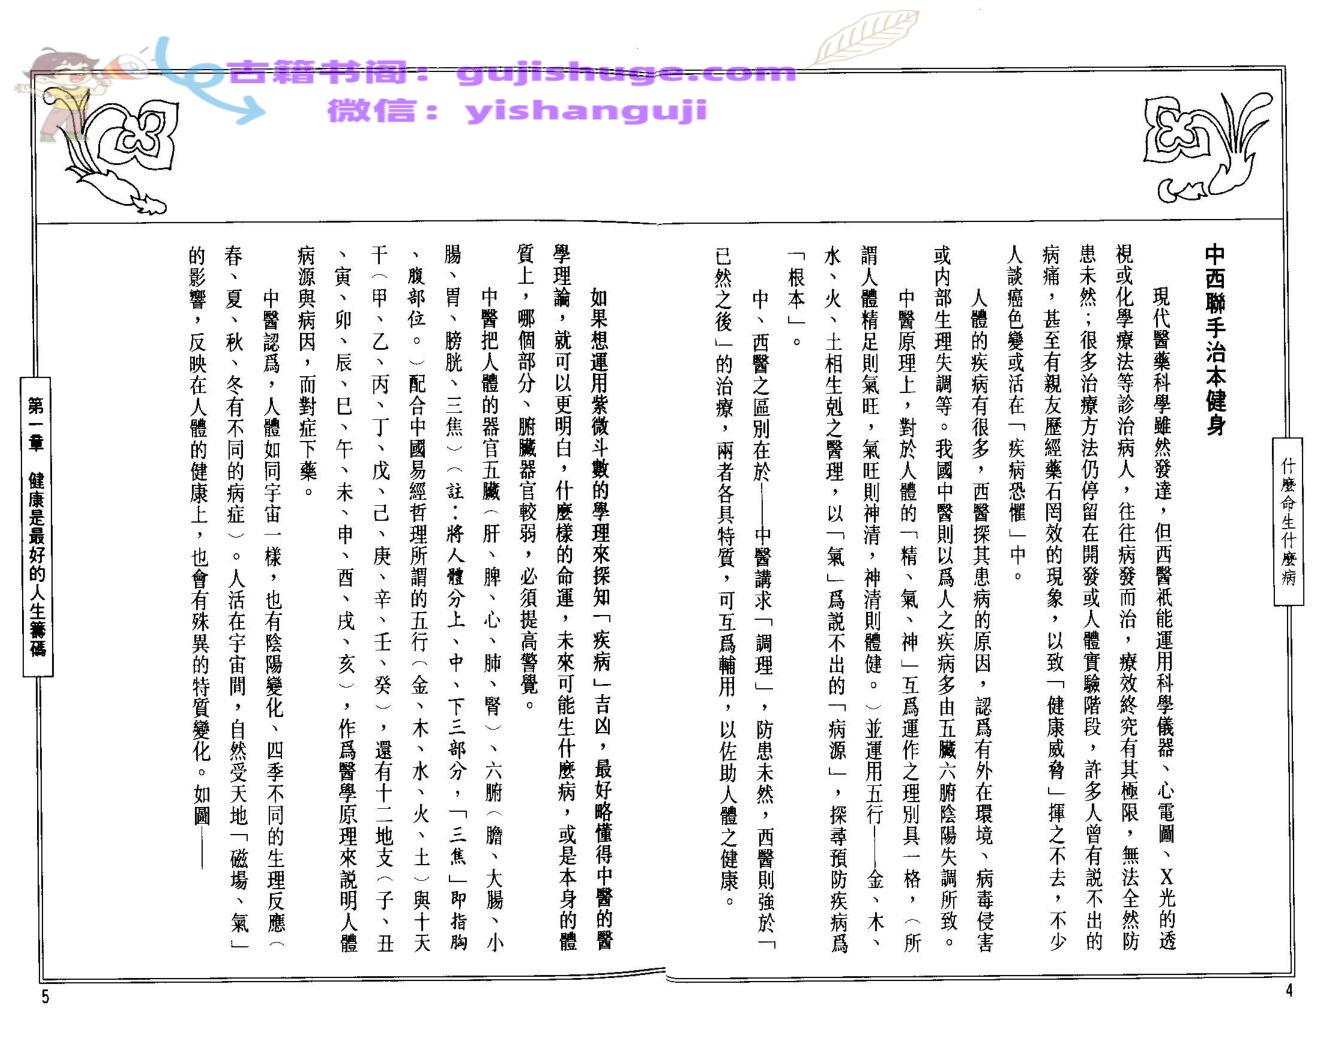 古籍书阁：gujishuge.com
微信：yishanguji
什麼命生什麼病
中西聯手治本健身
現代醫藥科學雖然發達，但西醫祇能運用科學儀器、心電圖、X光的透
視或化學療法等診治病人，往往病發而治，療效終究有其極限，無法全然防
患未然；很多治療方法仍停留在開發或人體實驗階段，許多人曾有説不出的
病痛，甚至有親友歷經藥石罔效的現象，以致「健康威脅」揮之不去，不少
人談癌色變或活在「疾病恐懼」中。
人體的疾病有很多，西醫探其患病的原因，認爲有外在環境、病毒侵害
或内部生理失調等。我國中醫則以爲人之疾病多由五臟六腑陰陽失調所致。
中醫原理上，對於人體的「精、氣、神」互爲運作之理別具一格，（所
謂人體精足則氣旺，氣旺則神清，神清則體健。）並運用五行——金、木、
水、火、土相生剋之醫理，以「氣」爲説不出的「病源」，探尋預防疾病爲
「根本」。
中、西醫之區別在於——中醫講求「調理」，防患未然，西醫則強於「
已然之後」的治療，兩者各具特質，可互爲輔用，以佐助人體之健康。
4
如果想運用紫微斗數的學理來探知「疾病」吉凶，最好略懂得中醫的醫
學理論，就可以更明白，什麼樣的命運，未來可能生什麼病，或是本身的體
質上，哪個部分、腑臟器官較弱，必須提高警覺。
中醫把人體的器官五臟（肝、脾、心、肺、腎）、六腑（膽、大腸、小
腸、胃、膀胱、三焦）（註：將人體分上、中、下三部分，「三焦」即指胸
、腹部位。）配合中國易經哲理所謂的五行（金、木、水、火、土）與十天
干（甲、乙、丙、丁、戊、己、庚、辛、壬、癸），還有十二地支（子、丑
、寅、卯、辰、巳、午、未、申、酉、戌、亥），作爲醫學原理來説明人體
病源與病因，而對症下藥。
中醫認爲，人體如同宇宙一樣，也有陰陽變化、四季不同的生理反應（
春、夏、秋、冬有不同的病症）。人活在宇宙間，自然受天地「磁場、氣」
的影響，反映在人體的健康上，也會有殊異的特質變化。如圖——
第一章　健康是最好的人生籌碼
5